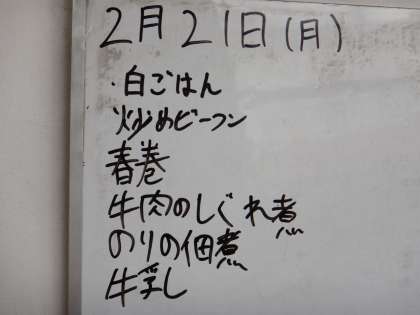 2月21日(月)
・白ごはん
炒めビーフン
春巻
牛肉のしぐれ煮
のりの佃煮
牛乳し